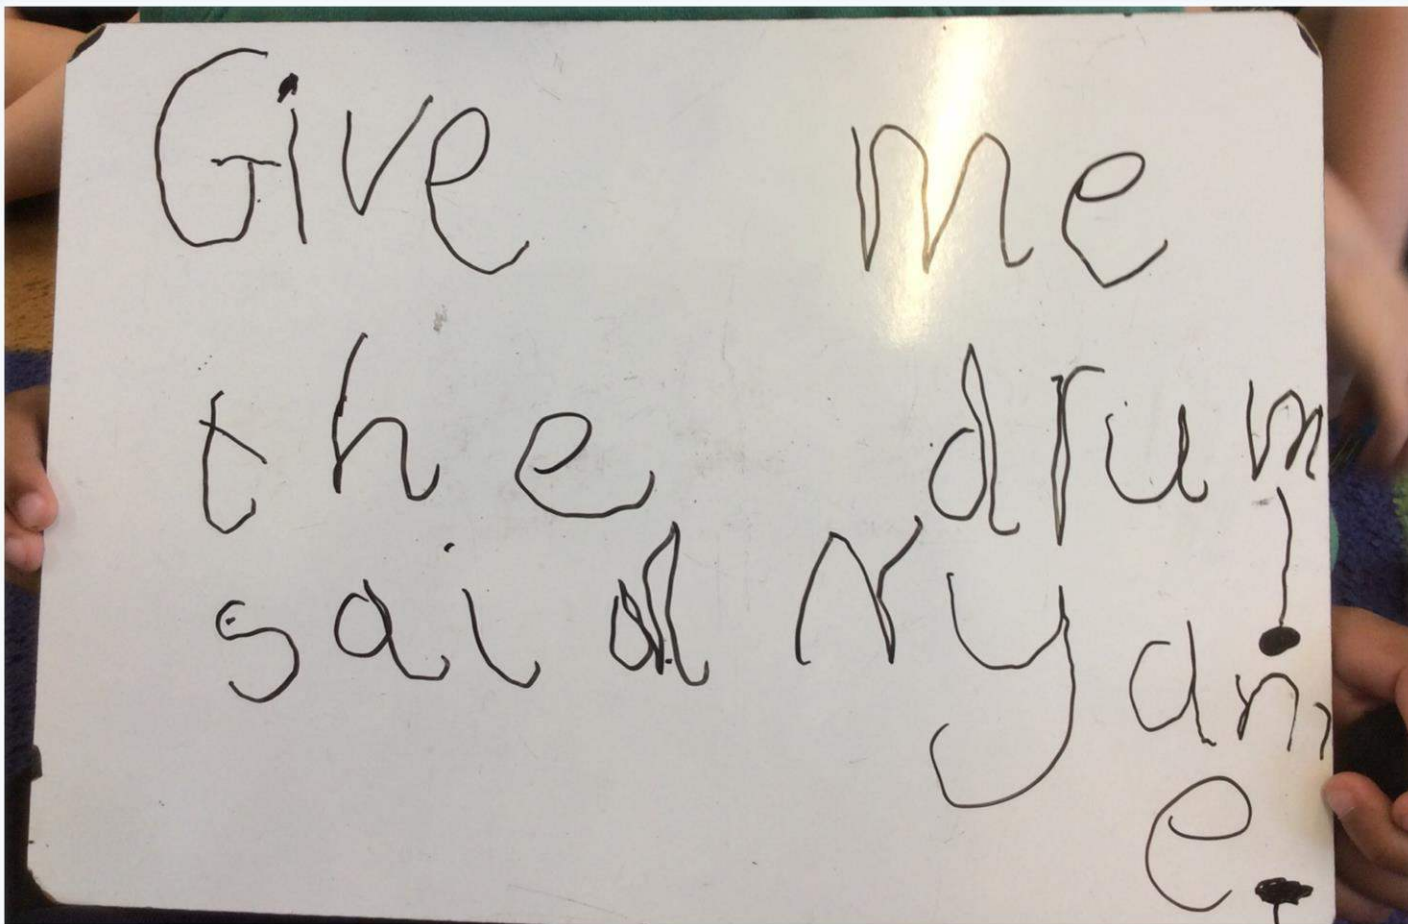 Give me
the drum!
said Nyan
e.